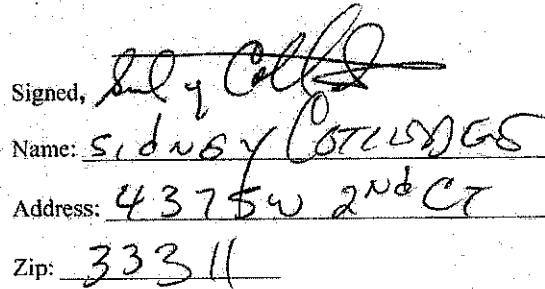 Signed,
Name: Sidney
Address: 4375W 2Nd CT
Zip: 33311